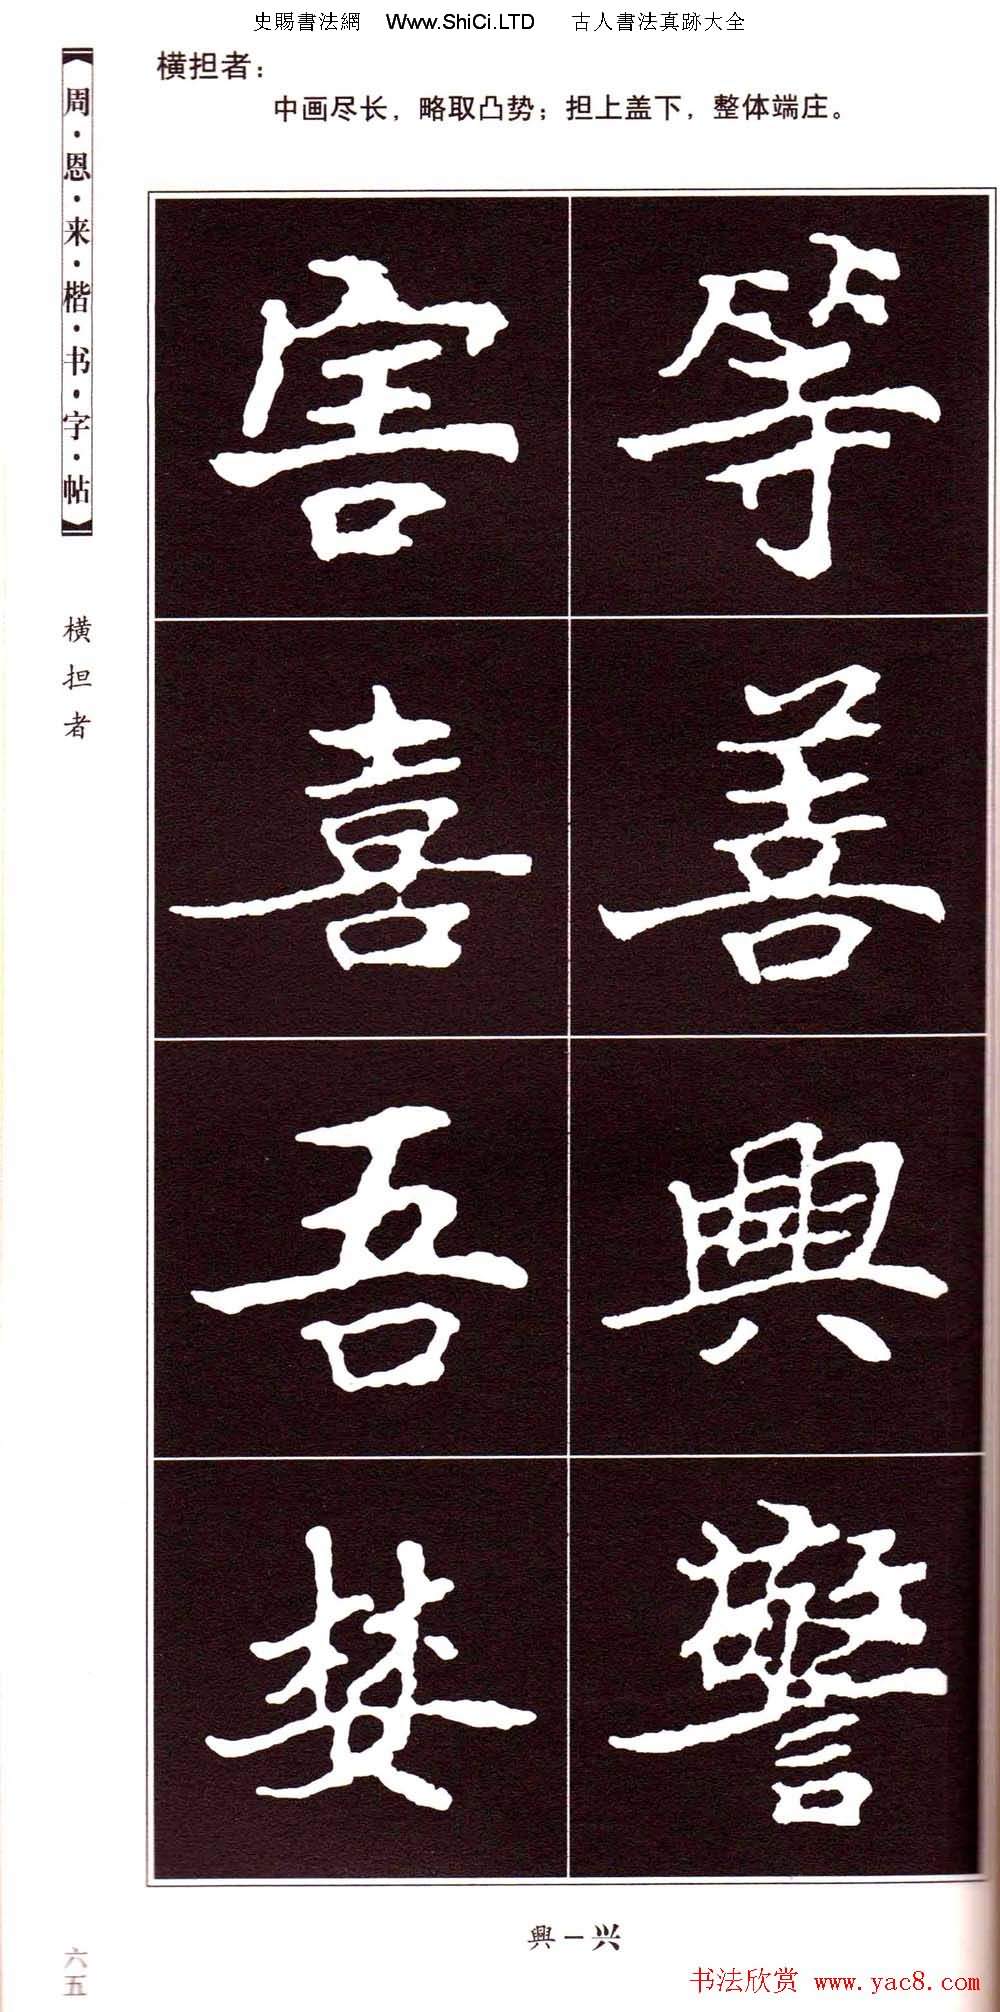 史賜書法網 Www.ShiCi.LTD 古人書法真跡大全
横担者：
中画尽长，略取凸势；担上盖下，整体端庄。
周·恩·来·楷·书·字·帖
横担者
等善興警
害喜吾婪
興－兴
六五
书法欣赏 www.yac8.com